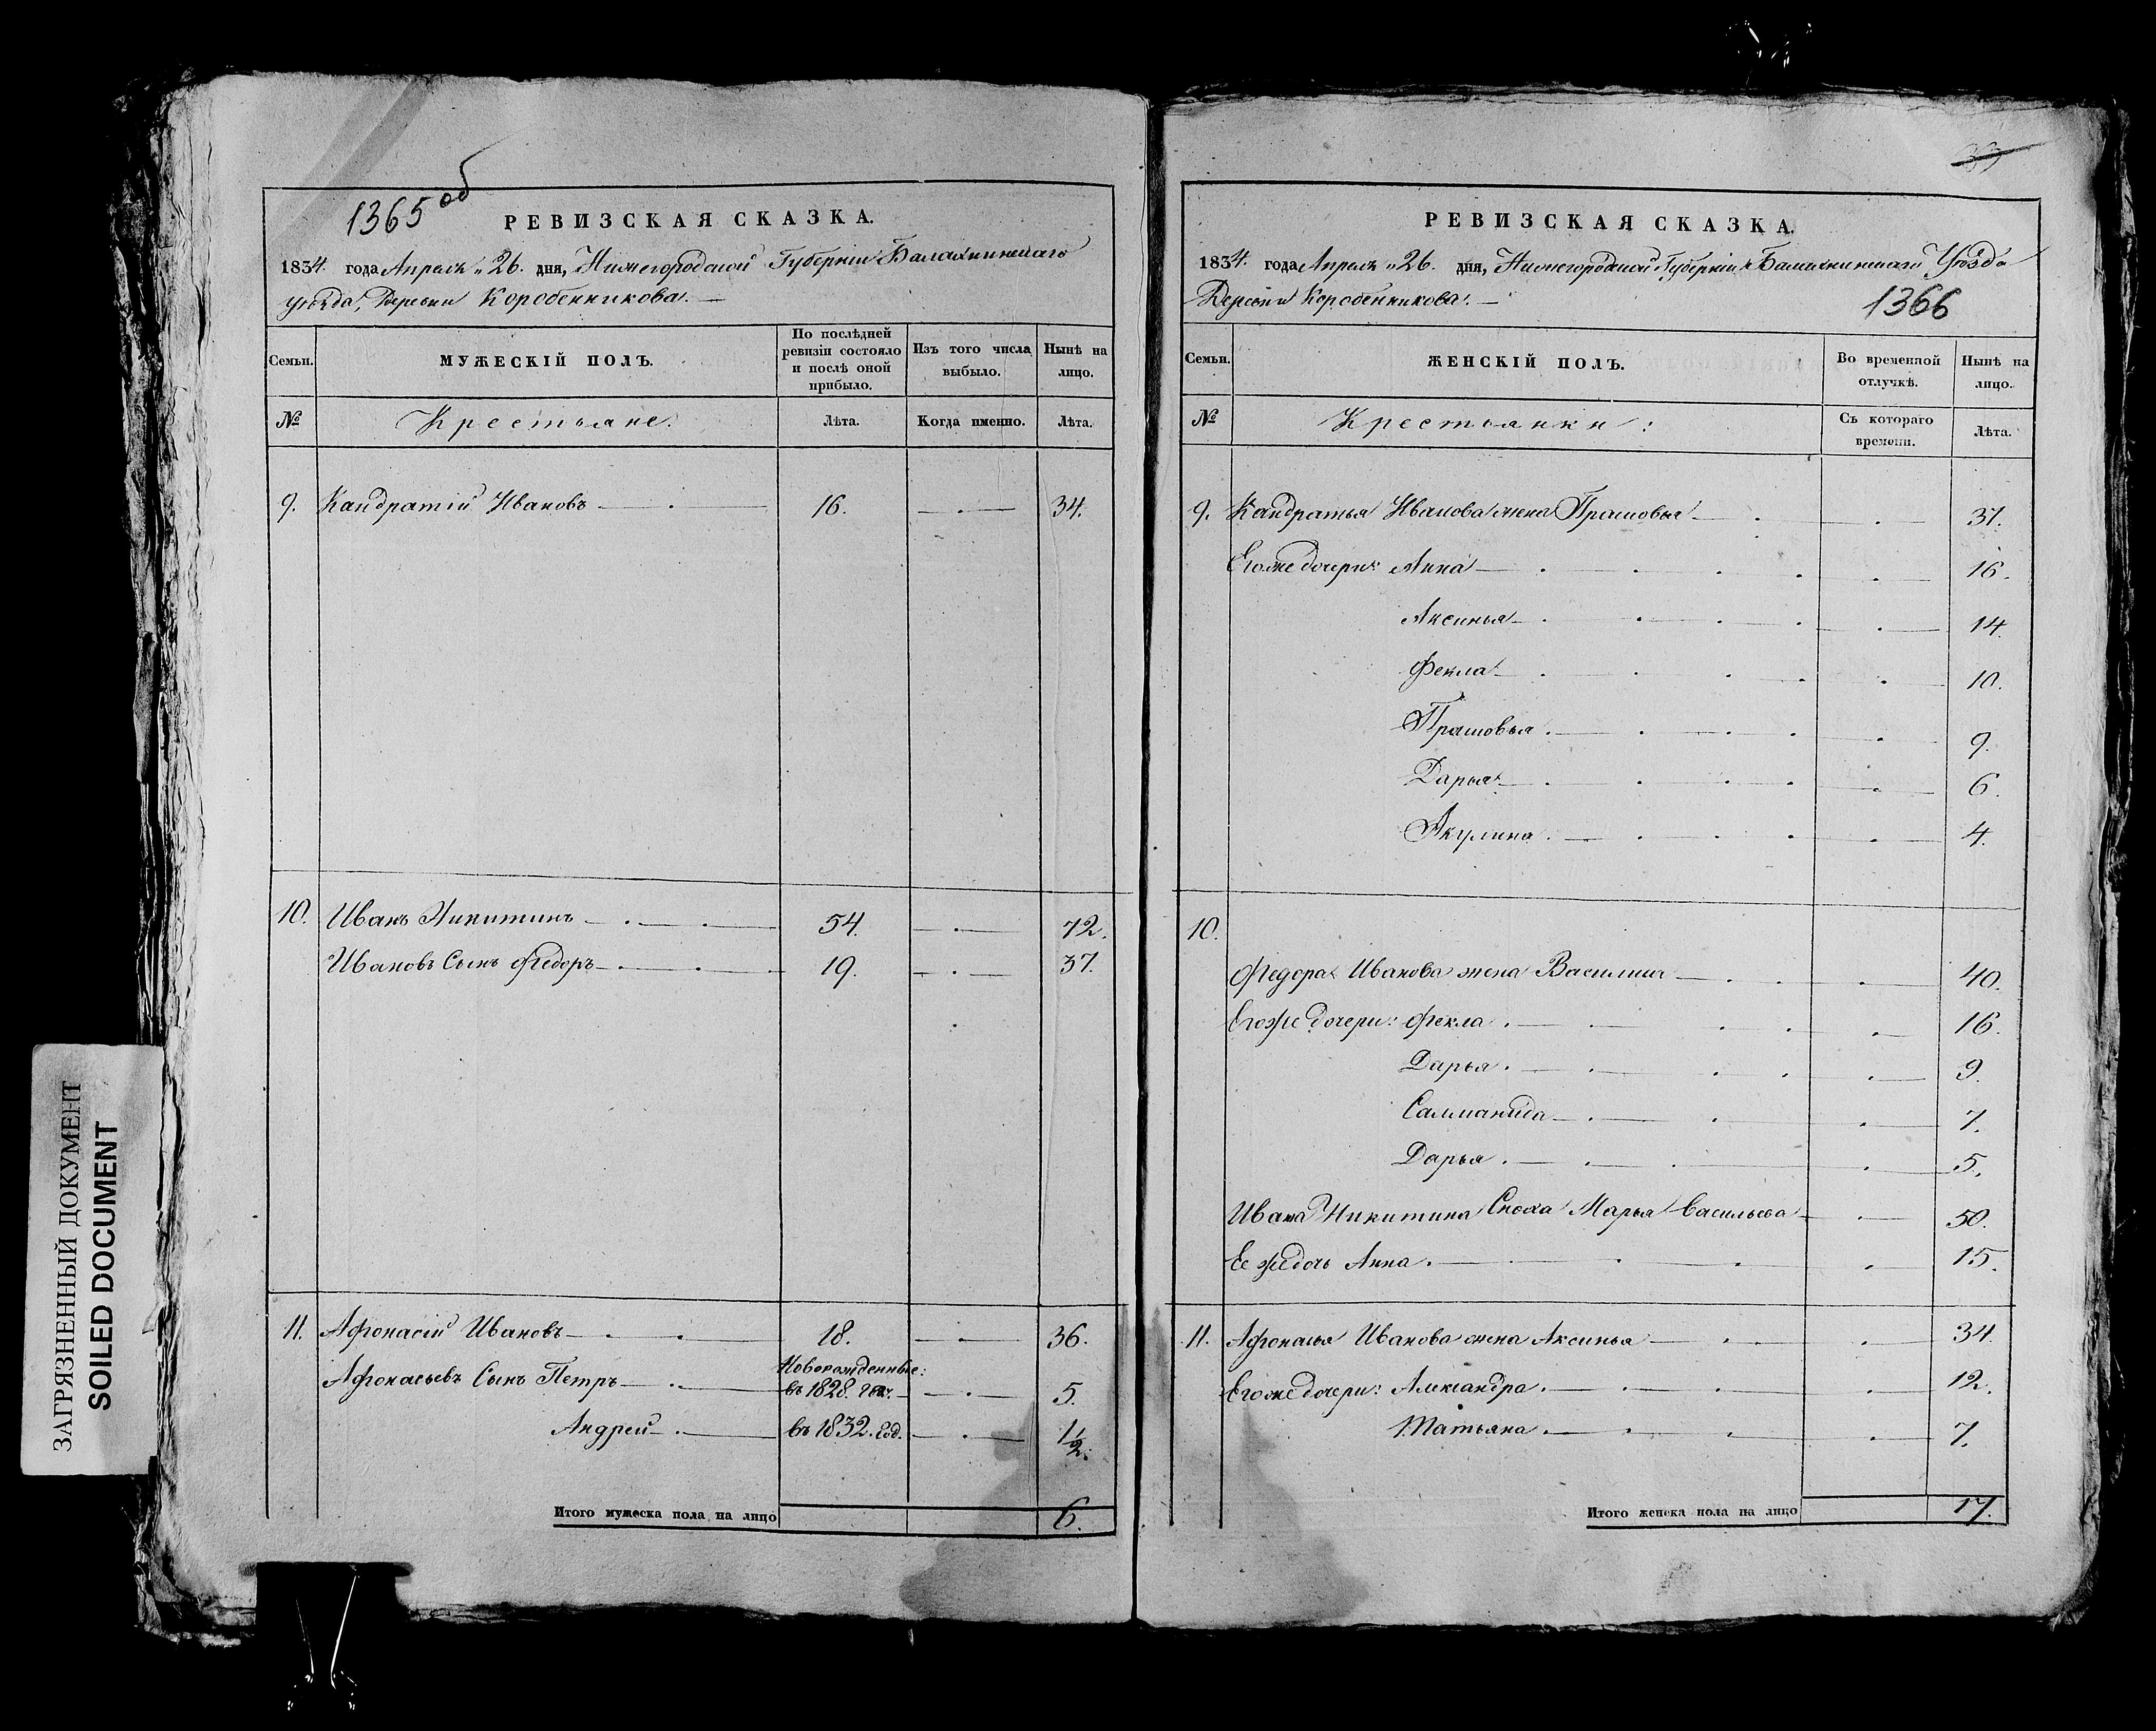 1365 об
РЕВИЗСКАЯ СКАЗКА.
1834. года Апреля „26. дня, Нижегородской Губерніи Балахнинскаго
уезда, Деревни Коробейникова. —
Семьи. МУЖЕСКІЙ ПОЛЪ. По послѣдней ревизіи состояло и послѣ оной прибыло. Изъ того числа выбыло. Нынѣ на лицо.
№ Крестьяне. Лѣта. Когда именно. Лѣта.
9. Кандратій Ивановъ 16. 34.
10. Иванъ Никитинъ 54. 72.
Ивановъ Сынъ Федоръ 19. 37.
11. Афонасій Ивановъ 18. 36.
Новорожденные:
Афонасьевъ Сынъ Петръ въ 1828. 5.
Андрей въ 1832. год. 1½.
Итого мужеска пола на лицо 6.
РЕВИЗСКАЯ СКАЗКА.
1834. года Апреля „26. дня, Нижегородской Губерніи Балахнинскаго Уезда
Деревни Коробейникова. —
1366
Семьи. ЖЕНСКІЙ ПОЛЪ. Во временной отлучкѣ. Нынѣ на лицо.
№ Крестьянки: Съ котораго времени. Лѣта.
9. Кандратья Иванова жена Прасковья 37.
Егоже дочери: Анна 16.
Аксинья 14.
Фекла 10.
Прасковья 9.
Дарья 6.
Акулина 4.
10.
Федора Иванова жена Василиса 40.
Егоже дочери: Фекла 16.
Дарья 9.
Саламанида 7.
Дарья 5.
Ивана Никитина Сноха Марья Васильева 50.
Ее же дочь Анна 15.
11. Афонасья Иванова жена Аксинья 34.
Егоже дочери: Александра 12.
Татьяна 7.
Итого женска пола на лицо 17.
ЗАГРЯЗНЕННЫЙ ДОКУМЕНТ
SOILED DOCUMENT